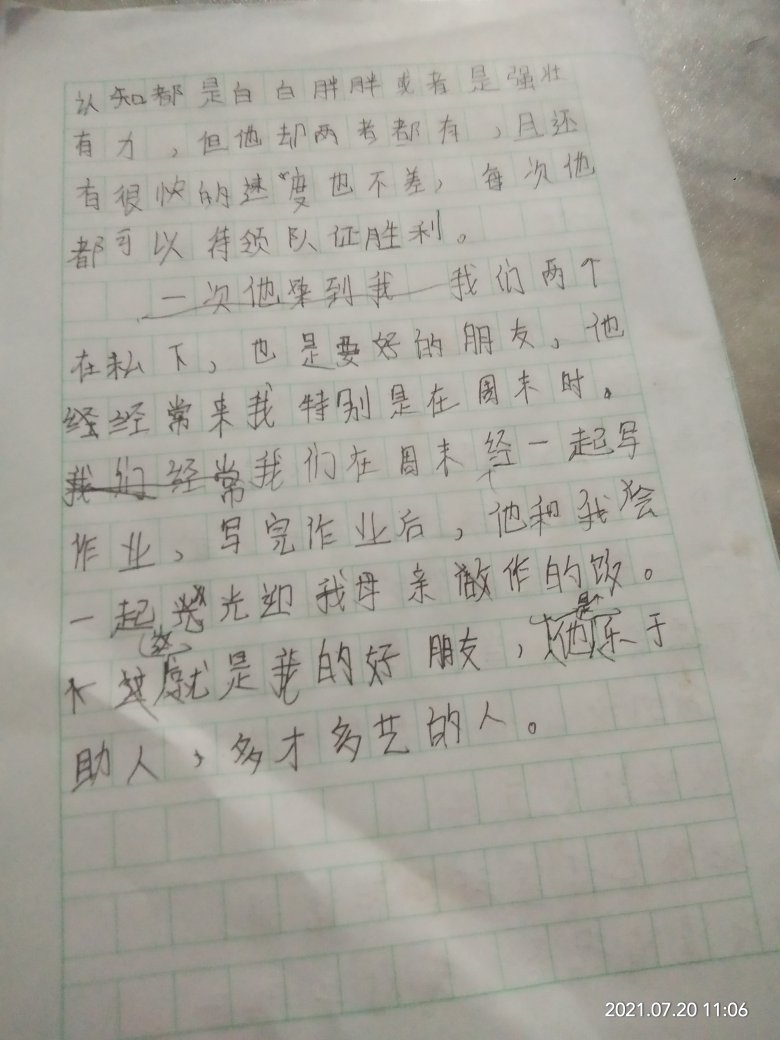 认知都是白白胖胖或者是强壮
有力，但他却两者都有，且还
有很快的速度也不差，每次他
都可以待领队征胜利。
一次他来到我 我们两个
在私下，也是要好的朋友，他
经经常来我特别是在周末时。
我们经常我们在周末经一起写
作业，写完作业后，他和我会
一起光迎我母亲做作的饭。
这就是我的好朋友，他是个乐于
助人，多才多艺的人。
2021.07.20 11:06